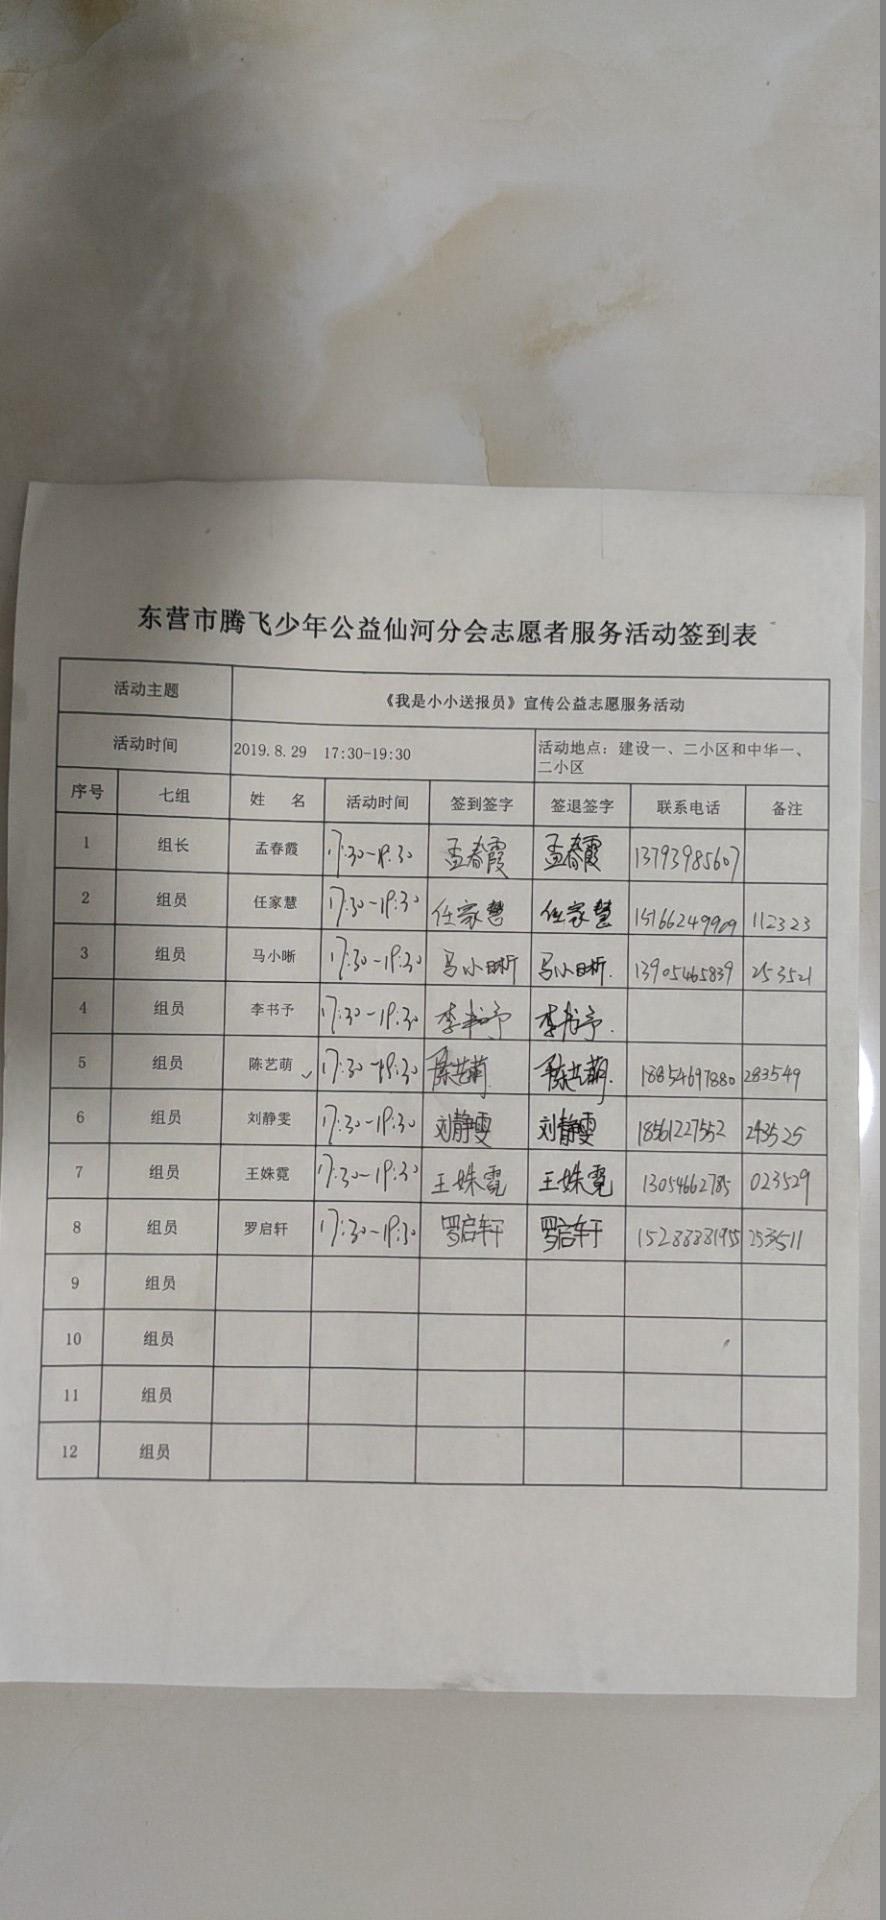 东营市腾飞少年公益仙河分会志愿者服务活动签到表
活动主题 《我是小小送报员》宣传公益志愿服务活动
活动时间 2019.8.29 17:30-19:30 活动地点：建设一、二小区和中华一、
二小区
序号 七组 姓 名 活动时间 签到签字 签退签字 联系电话 备注
1 组长 孟春霞 17:30-19:30 孟春霞 孟春霞 13793985607
2 组员 任家慧 17:30-19:30 任家慧 任家慧 15166249909 112323
3 组员 马小晰 17:30-19:30 马小晰 马小晰. 13905465839 253521
4 组员 李书予 17:30-19:30 李书予 李书予.
5 组员 陈艺萌 17:30-19:30 陈艺萌 陈艺萌. 18854697880 283549
6 组员 刘静雯 17:30-19:30 刘静雯 刘静雯 18561227552 243525
7 组员 王姝霓 17:30-19:30 王姝霓 王姝霓 13054662785 023529
8 组员 罗启轩 17:30-19:30 罗启轩 罗启轩 253511
9 组员
10 组员
11 组员
12 组员